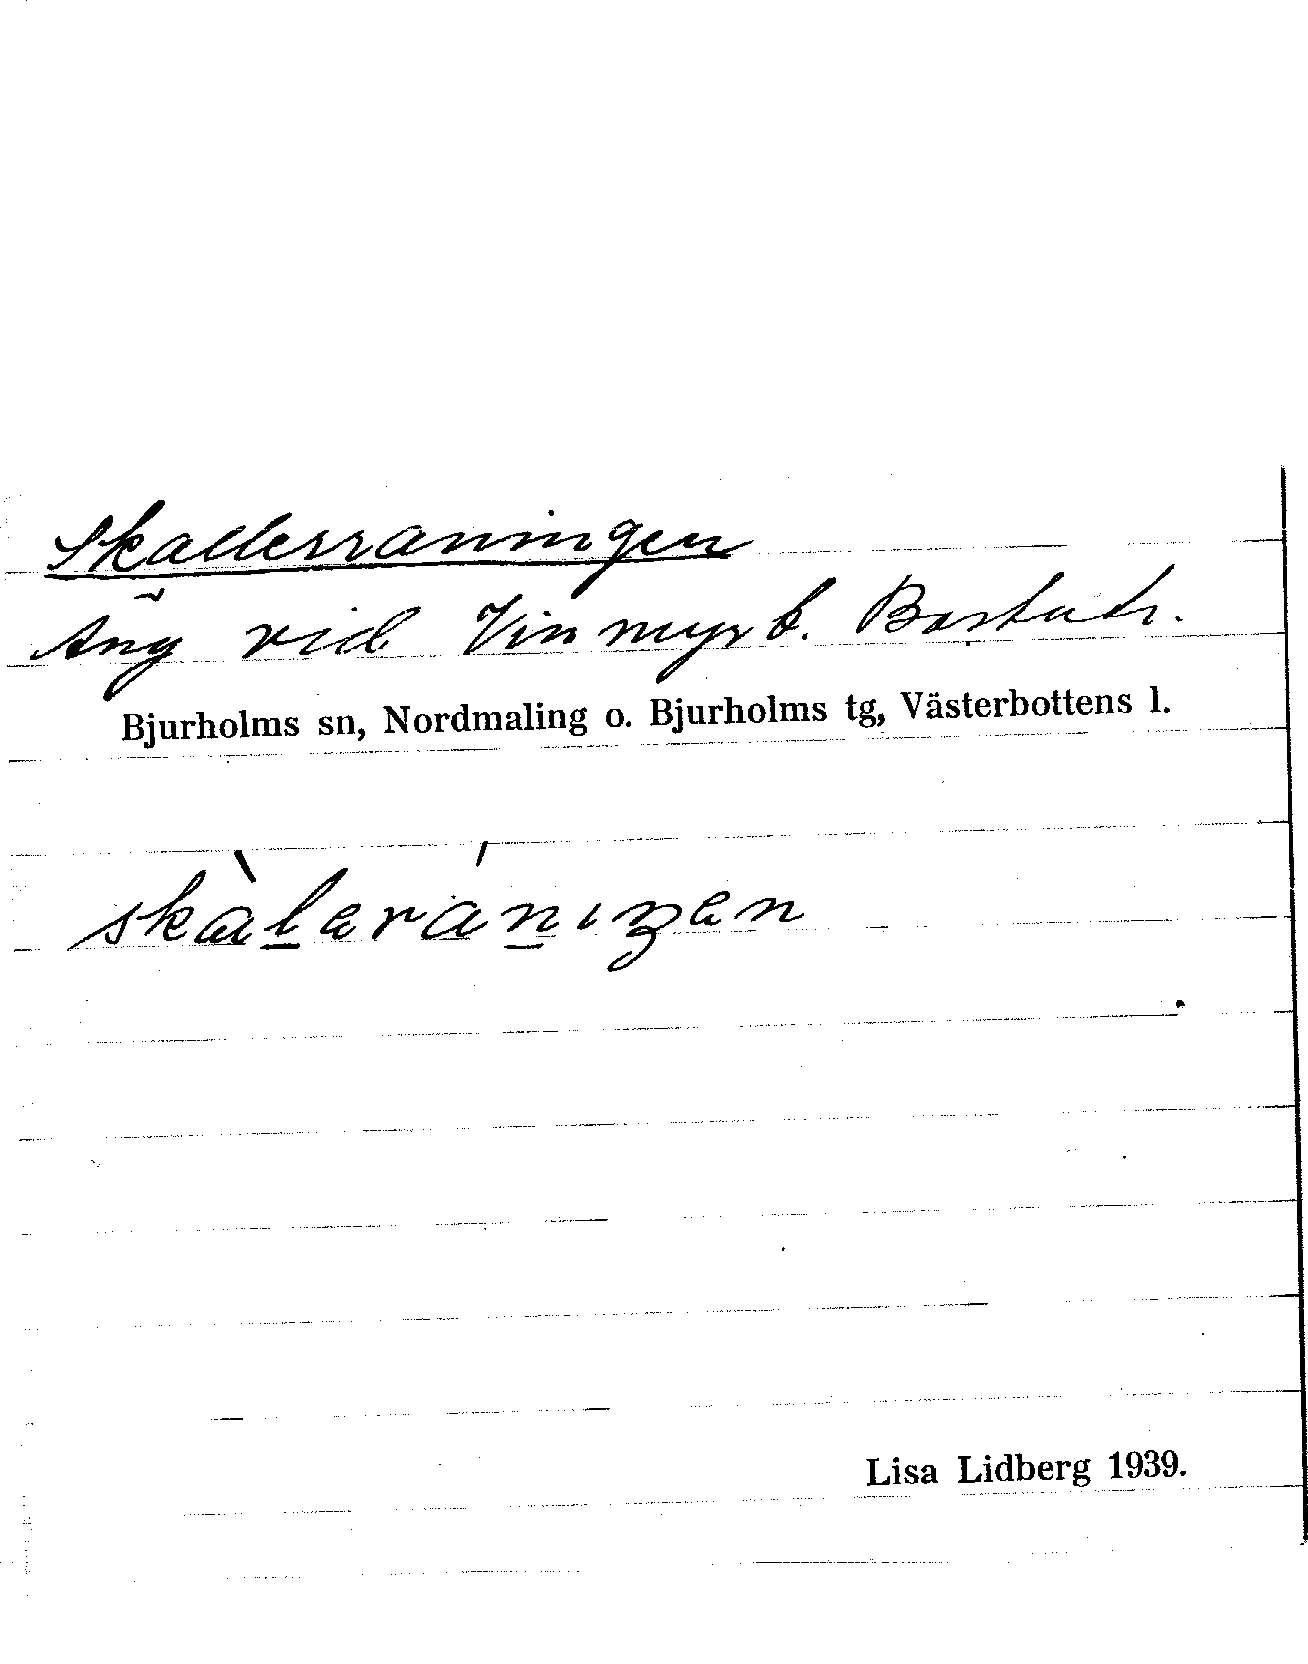 Skallerraningen
Äng vid Vinmyrb. Bastutr.
Bjurholms sn, Nordmaling o. Bjurholms tg, Västerbottens l.
skàleránıŋen
Lisa Lidberg 1939.